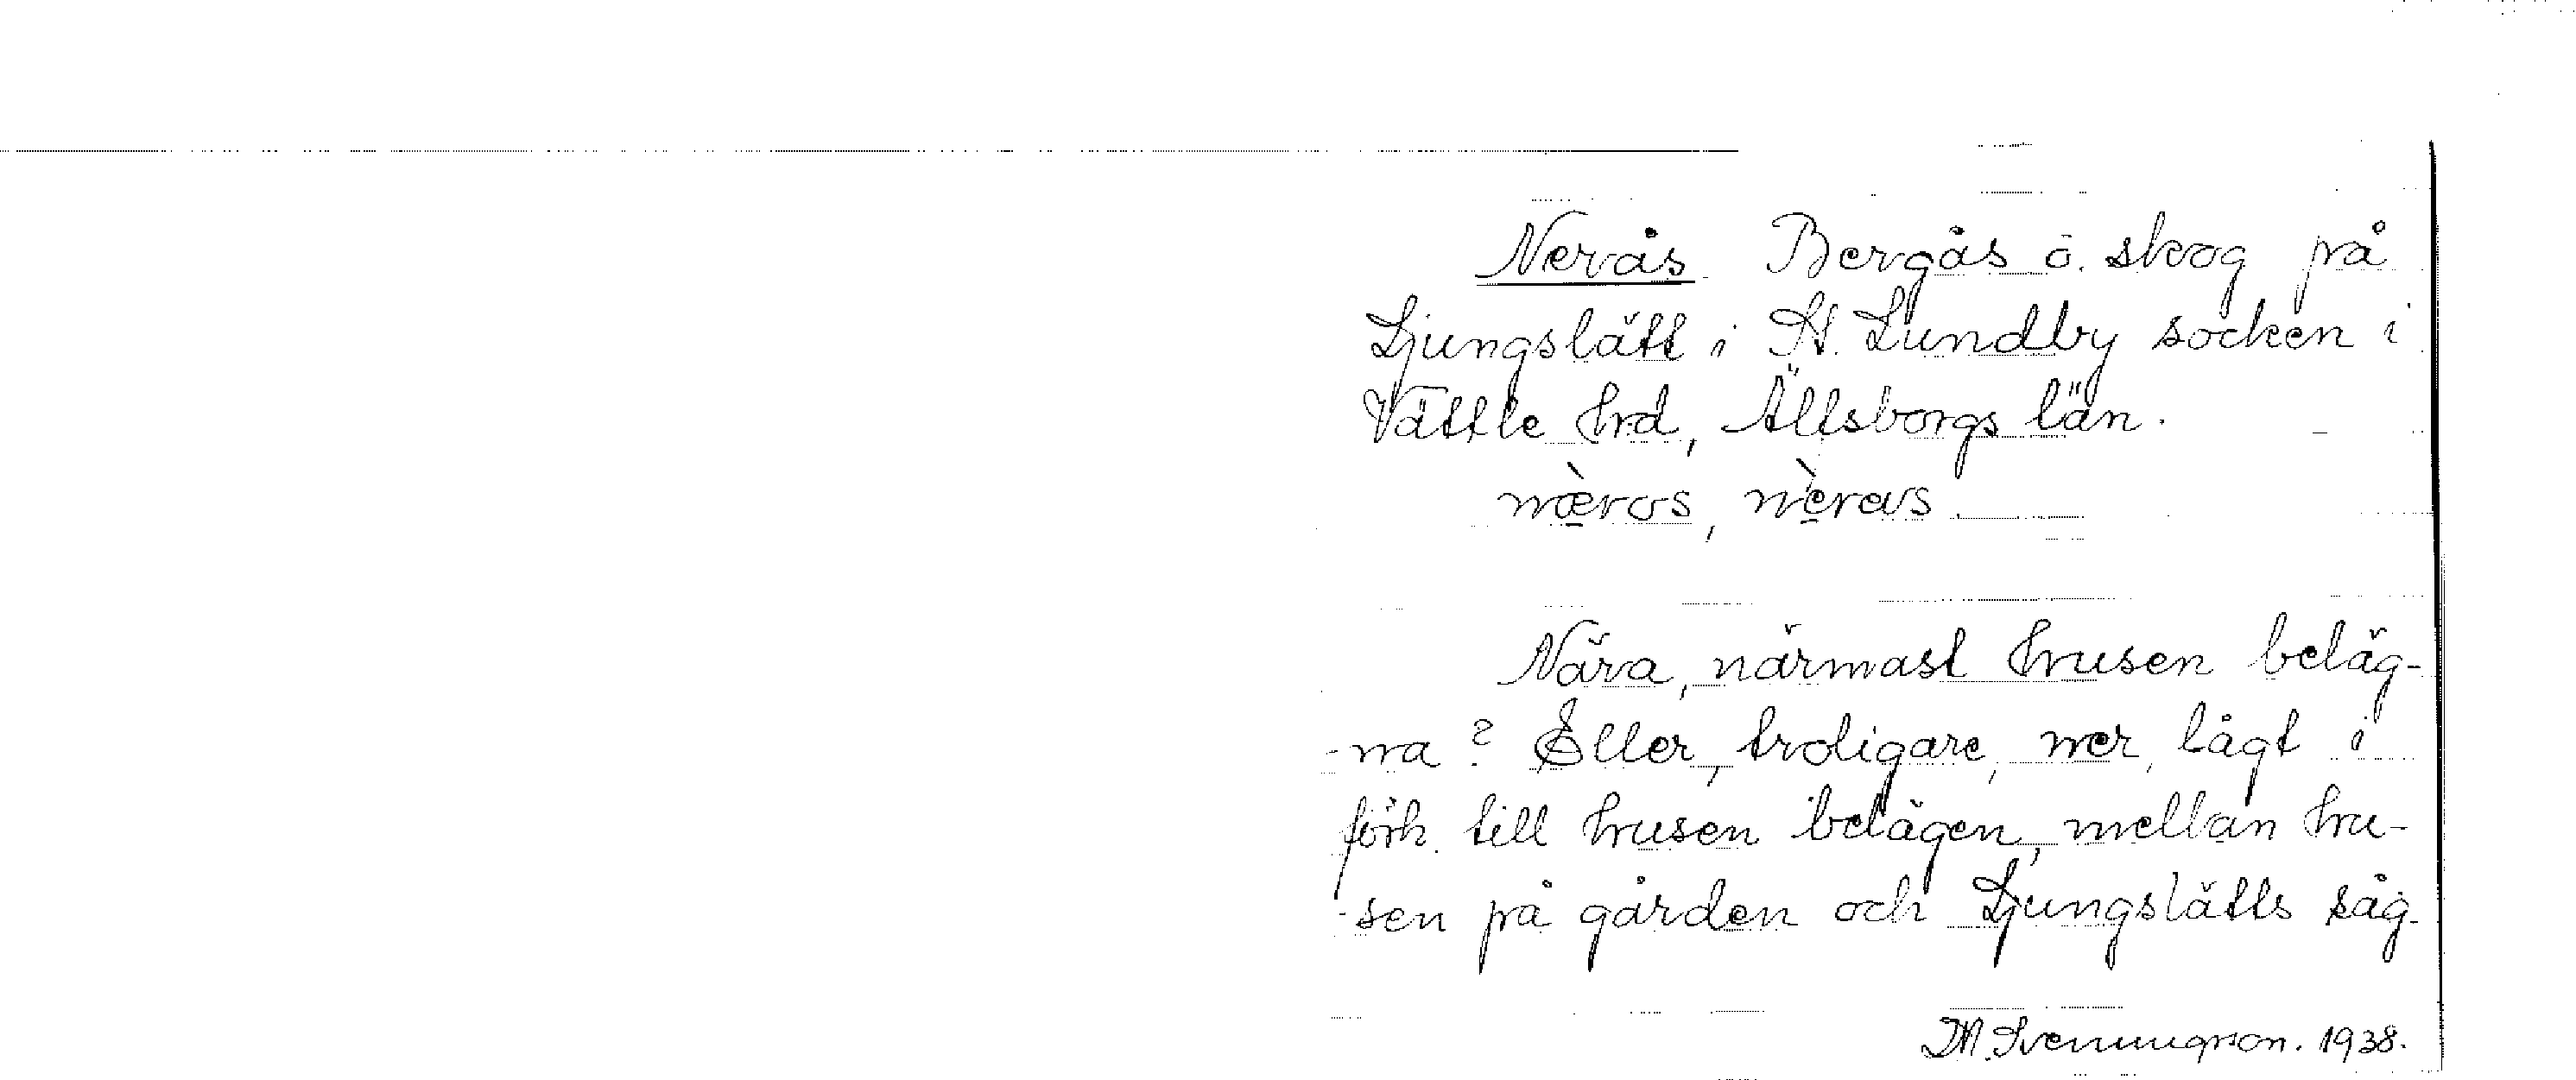 Nerås Bergås o. skog på
Ljungslätt i St. Lundby socken i
Vättle hrd, Älfsborgs län.
næ̀ros, nèras.
Nära, närmast husen beläg-
-na? Eller, troligare, ner, lågt i
förh. till husen belägen, mellan hu-
-sen på gården och Ljungslätts såg.
D.A. Svenningson. 1938.